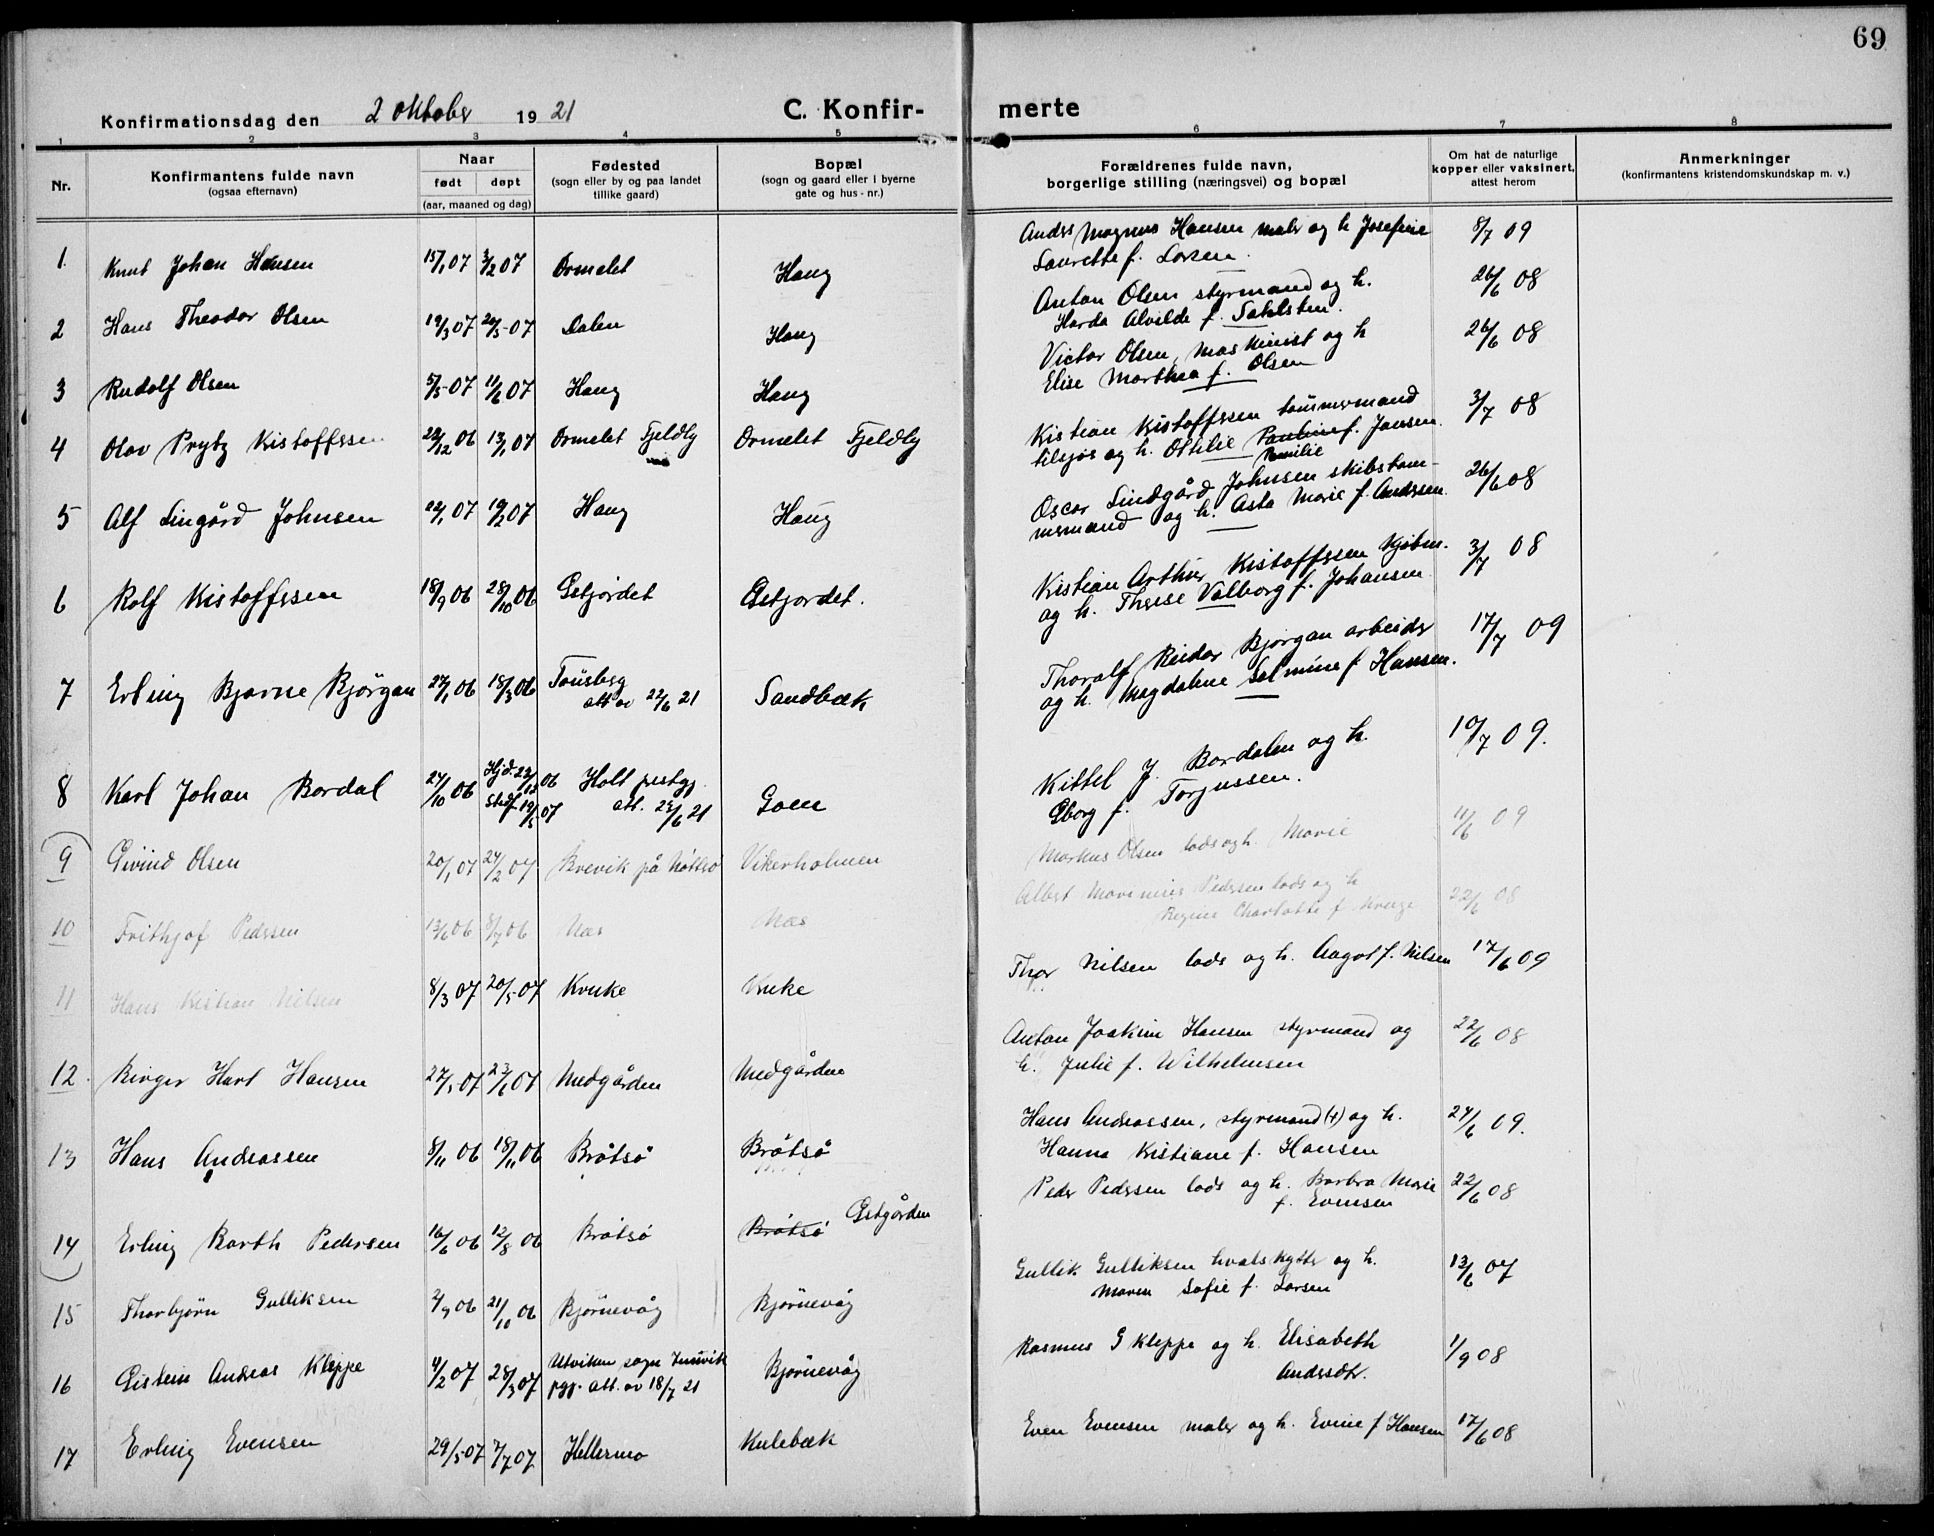 69
Konfirmationsdag den 2 oktober 1921
C. Konfir- merte
1 2 3 4 5 6 7 8
Nr.
Konfirmantens fulde navn
(ogsaa efternavn)
Naar
født døpt
(aar, maaned og dag)
Fødested
(sogn eller by og paa landet
tillike gaard)
Bopæl
(sogn og gaard eller i byerne
gate og hus-nr.)
Forældrenes fulde navn,
borgerlige stilling (næringsvei) og bopæl
Om hat de naturlige
kopper eller vaksinert,
attest herom
Anmerkninger
(konfirmantens kristendomskundskap m. v.)
1 Knut Johan Hansen 15/1 07 3/2 07 Ormelet Haug
Anders Magnus Hansen maler og h. Josefine 8/7 09
Laurette f. Larsen.
2 Hans Theodor Olsen 19/3 07 20/5-07 Dalen Haug
Anton Olsen styrmand og h. 26/6 08
Harda Alvilde f. Sahlsten.
3 Rudolf Olsen 5/5-07 11/6 07 Haug Haug
Victor Olsen, maskinist og h 26/6 08
Elise Marthea f. Olsen
4 Olav Prytz Kristoffersen 22/12 06 13/1 07 Ormelet Fjeldly Ormelet Fjeldly
Kristian Kristoffersen tømmermand 3/7 08
tilsjøs og h. Ottilie Pauline f. Jansen.
5 Alf Lingård Johnsen 22/1 07 19/2 07 Haug Haug
Oscar Lindgård Johnsen skibstøm- 26/6 08
mermand og h. Asta Marie f. Andersen.
6 Rolf Kristoffersen 18/9 06 28/10 06 Østjordet Østjordet.
Kristian Arthur Kristoffersen kjøbm. 3/7 08
og h. Therese Valborg f. Johansen
7 Erling Bjarne Bjørgan 27/1 06 18/3 06 Tønsberg Sandbæk
att av 22/6 21
Thoralf Reidar Bjørgan arbeider 17/7 09
og h. Magdalene Salmine f. Hansen.
8 Karl Johan Bordal 27/10 06 Hjd. 23/12 06 Holt prestgj. Goen
Stadf. 19/5-07 att. 23/6 21
Kittel J. Bordalen og h. 10/7 09.
Eborg f. Torjussen.
9 Eivind Olsen 20/1 07 24/2 07 Brevik på Nøtterø Vikerholmen
Markus Olsen lods og h. Marie 11/6 09
10 Frithjof Pedersen 13/6 06 8/7 06 Næs Næs
Albert Marenius Pedersen lods og h 22/6 08
Regine Charlotte f.
11 Hans Kristian Nilsen 8/3 07 20/5-07 Kruke Kruke
Thor Nilsen lods og h. Aagot f. Nilsen 17/6 09
12. Birger Harl Hansen 27/5 07 23/6 07 Medgården Medgården
Anton Joakim Hansen styrmand og 22/6 08
h. Julie f. Wilhelmsen
13 Hans Andreassen 8/11 06 18/11 06 Bråtsø Bråtsø
Hans Andreassen, styrmand (+) og h. 24/6 09.
Hanna Kristiane f. Hansen
14 Erling Barth Pedersen 16/6 06 12/8 06 Bråtsø Bråtsø Østgården
Peder Pedersen lods og h. Barbra Marie 22/6 08
f. Evensen
15 Thorbjørn Gulliksen 2/9 06 21/10 06 Bjørnevåg Bjørnevåg
Gullik Gulliksen hvalskytter og h. 13/6 07
Maren Sofie f. Larsen
16 Eistein Andreas Kleppe 4/2 07 28/3 07 Utviken sogn Innvik Bjørnevåg
pgj. att. av 18/7 21
Rasmus G Kleppe og h. Elisabeth 1/9 08
Andersdtr.
17 Erling Evensen 29/5-07 7/7 07 Hellermo Kulebæk
Even Evensen maler og h. Evine f Hansen 17/6 08